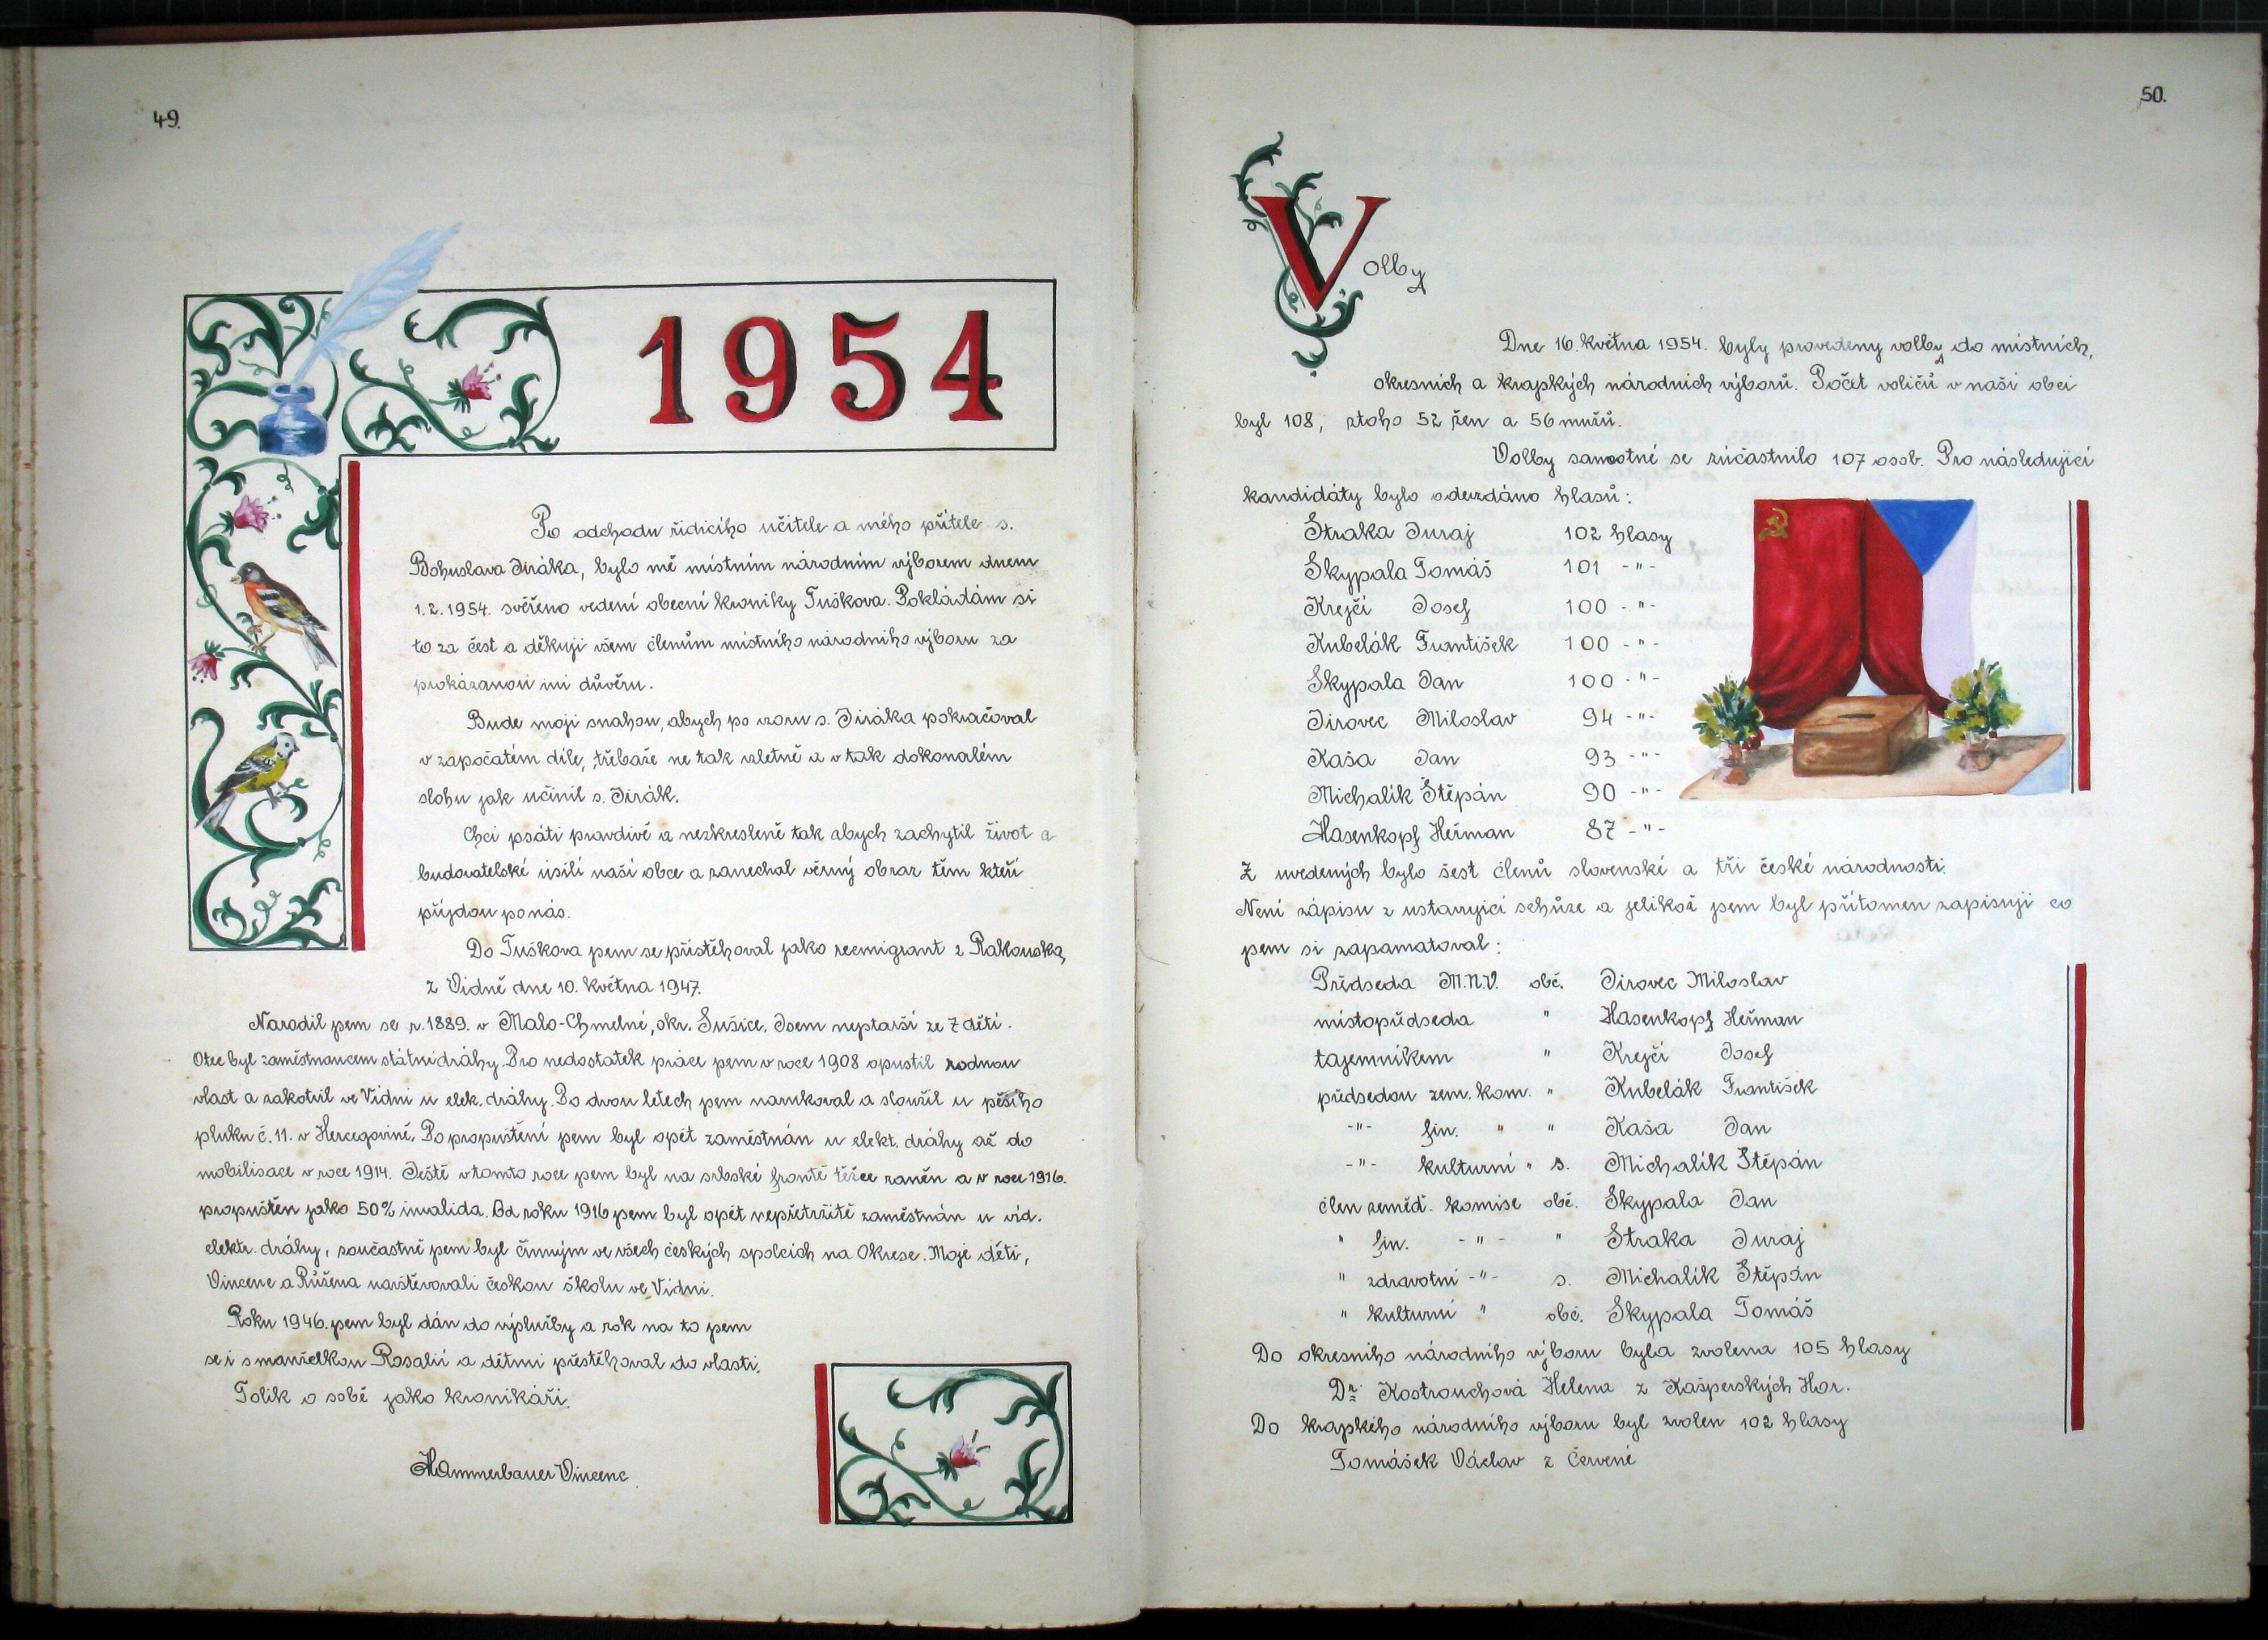 49.
1954
Po odchodu řidicího učitele a mého přítele s.
Bohuslava Jiráka, bylo mě místním národním výborem dnem
1.2.1954. svěřeno vedení obecní kroniky Tuškova. Pokládám si
to za čest a děkuji všem členům místního národního výboru za
prokázanou mi důvěru.
Bude moji snahou, abych po vzoru s. Jiráka pokračoval
v započatém díle, třebaže ne tak vzletně a v tak dokonalém
slohu jak učinil s. Jirák.
Chci psáti pravdivě a nezkresleně tak abych zachytil život a
budovatelské úsilí naší obce a zanechal věrný obraz těm kteří
přijdou po nás.
Do Tuškova jsem se přistěhoval jako reemigrant z Rakouska,
z Vídně dne 10. května 1947.
Narodil jsem se r. 1889. v Malo-Chmelné, okr. Sušice. Jsem nejstarší ze 7 dětí.
Otec byl zaměstnancem státní dráhy. Pro nedostatek práce jsem v roce 1908 opustil rodnou
vlast a zakotvil ve Vídni u elek. dráhy. Po dvou létech jsem narukoval a sloužil u pěšího
pluku č. 11. v Hercegovině. Po propuštění jsem byl opět zaměstnán u elekt. dráhy až do
mobilisace v roce 1914. Ještě v tomto roce jsem byl na srbské frontě těžce raněn a v roce 1916.
propuštěn jako 50% invalida. Od roku 1916 jsem byl opět nepřetržitě zaměstnán u víd.
elektr. dráhy, součastně jsem byl činným ve všech českých spolcích na Okrese. Moje děti,
Vincenc a Růžena navštěvovali českou školu ve Vídni.
Roku 1946. jsem byl dán do výslužby a rok na to jsem
se i s manželkou Rosalií a dětmi přestěhoval do vlasti.
Tolik o sobě jako kronikáři.
Hammerbauer Vincenc
50.
Volby
Dne 16. května 1954. byly provedeny volby do místních,
okresních a krajských národních výborů. Počet voličů v naší obci
byl 108, ztoho 52 žen a 56 mužů.
Volby samostné se zúčastnilo 107 osob. Pro následující
kandidáty bylo odevzdáno hlasů:
Straka Juraj 102 hlasy
Skypala Tomáš 101 -"-
Krejčí Josef 100 -"-
Kubelák František 100 -"-
Skypala Jan 100 -"-
Jirovec Miloslav 94 -"-
Kaša Jan 93 -"-
Michalík Štěpán 90 -"-
Hasenkopf Heřman 87 -"-
Z uvedených bylo šest členů slovenské a tři české národnosti.
Není zápisu z ustavující schůze a jelikož jsem byl přítomen zapisuji co
jsem si zapamatoval:
Předseda M.N.V. obč. Jirovec Miloslav
místopředseda " Hasenkopf Heřman
tajemníkem " Krejčí Josef
předsedou zem. kom. " Kubelák František
-"- fin. " " Kaša Jan
-"- kulturní " s. Michalík Štěpán
člen zeměd. komise obč. Skypala Jan
" fin. -"- " Straka Juraj
" zdravotní -"- s. Michalík Štěpán
" kulturní " obč. Skypala Tomáš
Do okresního národního výboru byla zvolena 105 hlasy
Dr. Kostrouchová Helena z Kašperských Hor.
Do krajského národního výboru byl zvolen 102 hlasy
Tomášek Václav z Červené